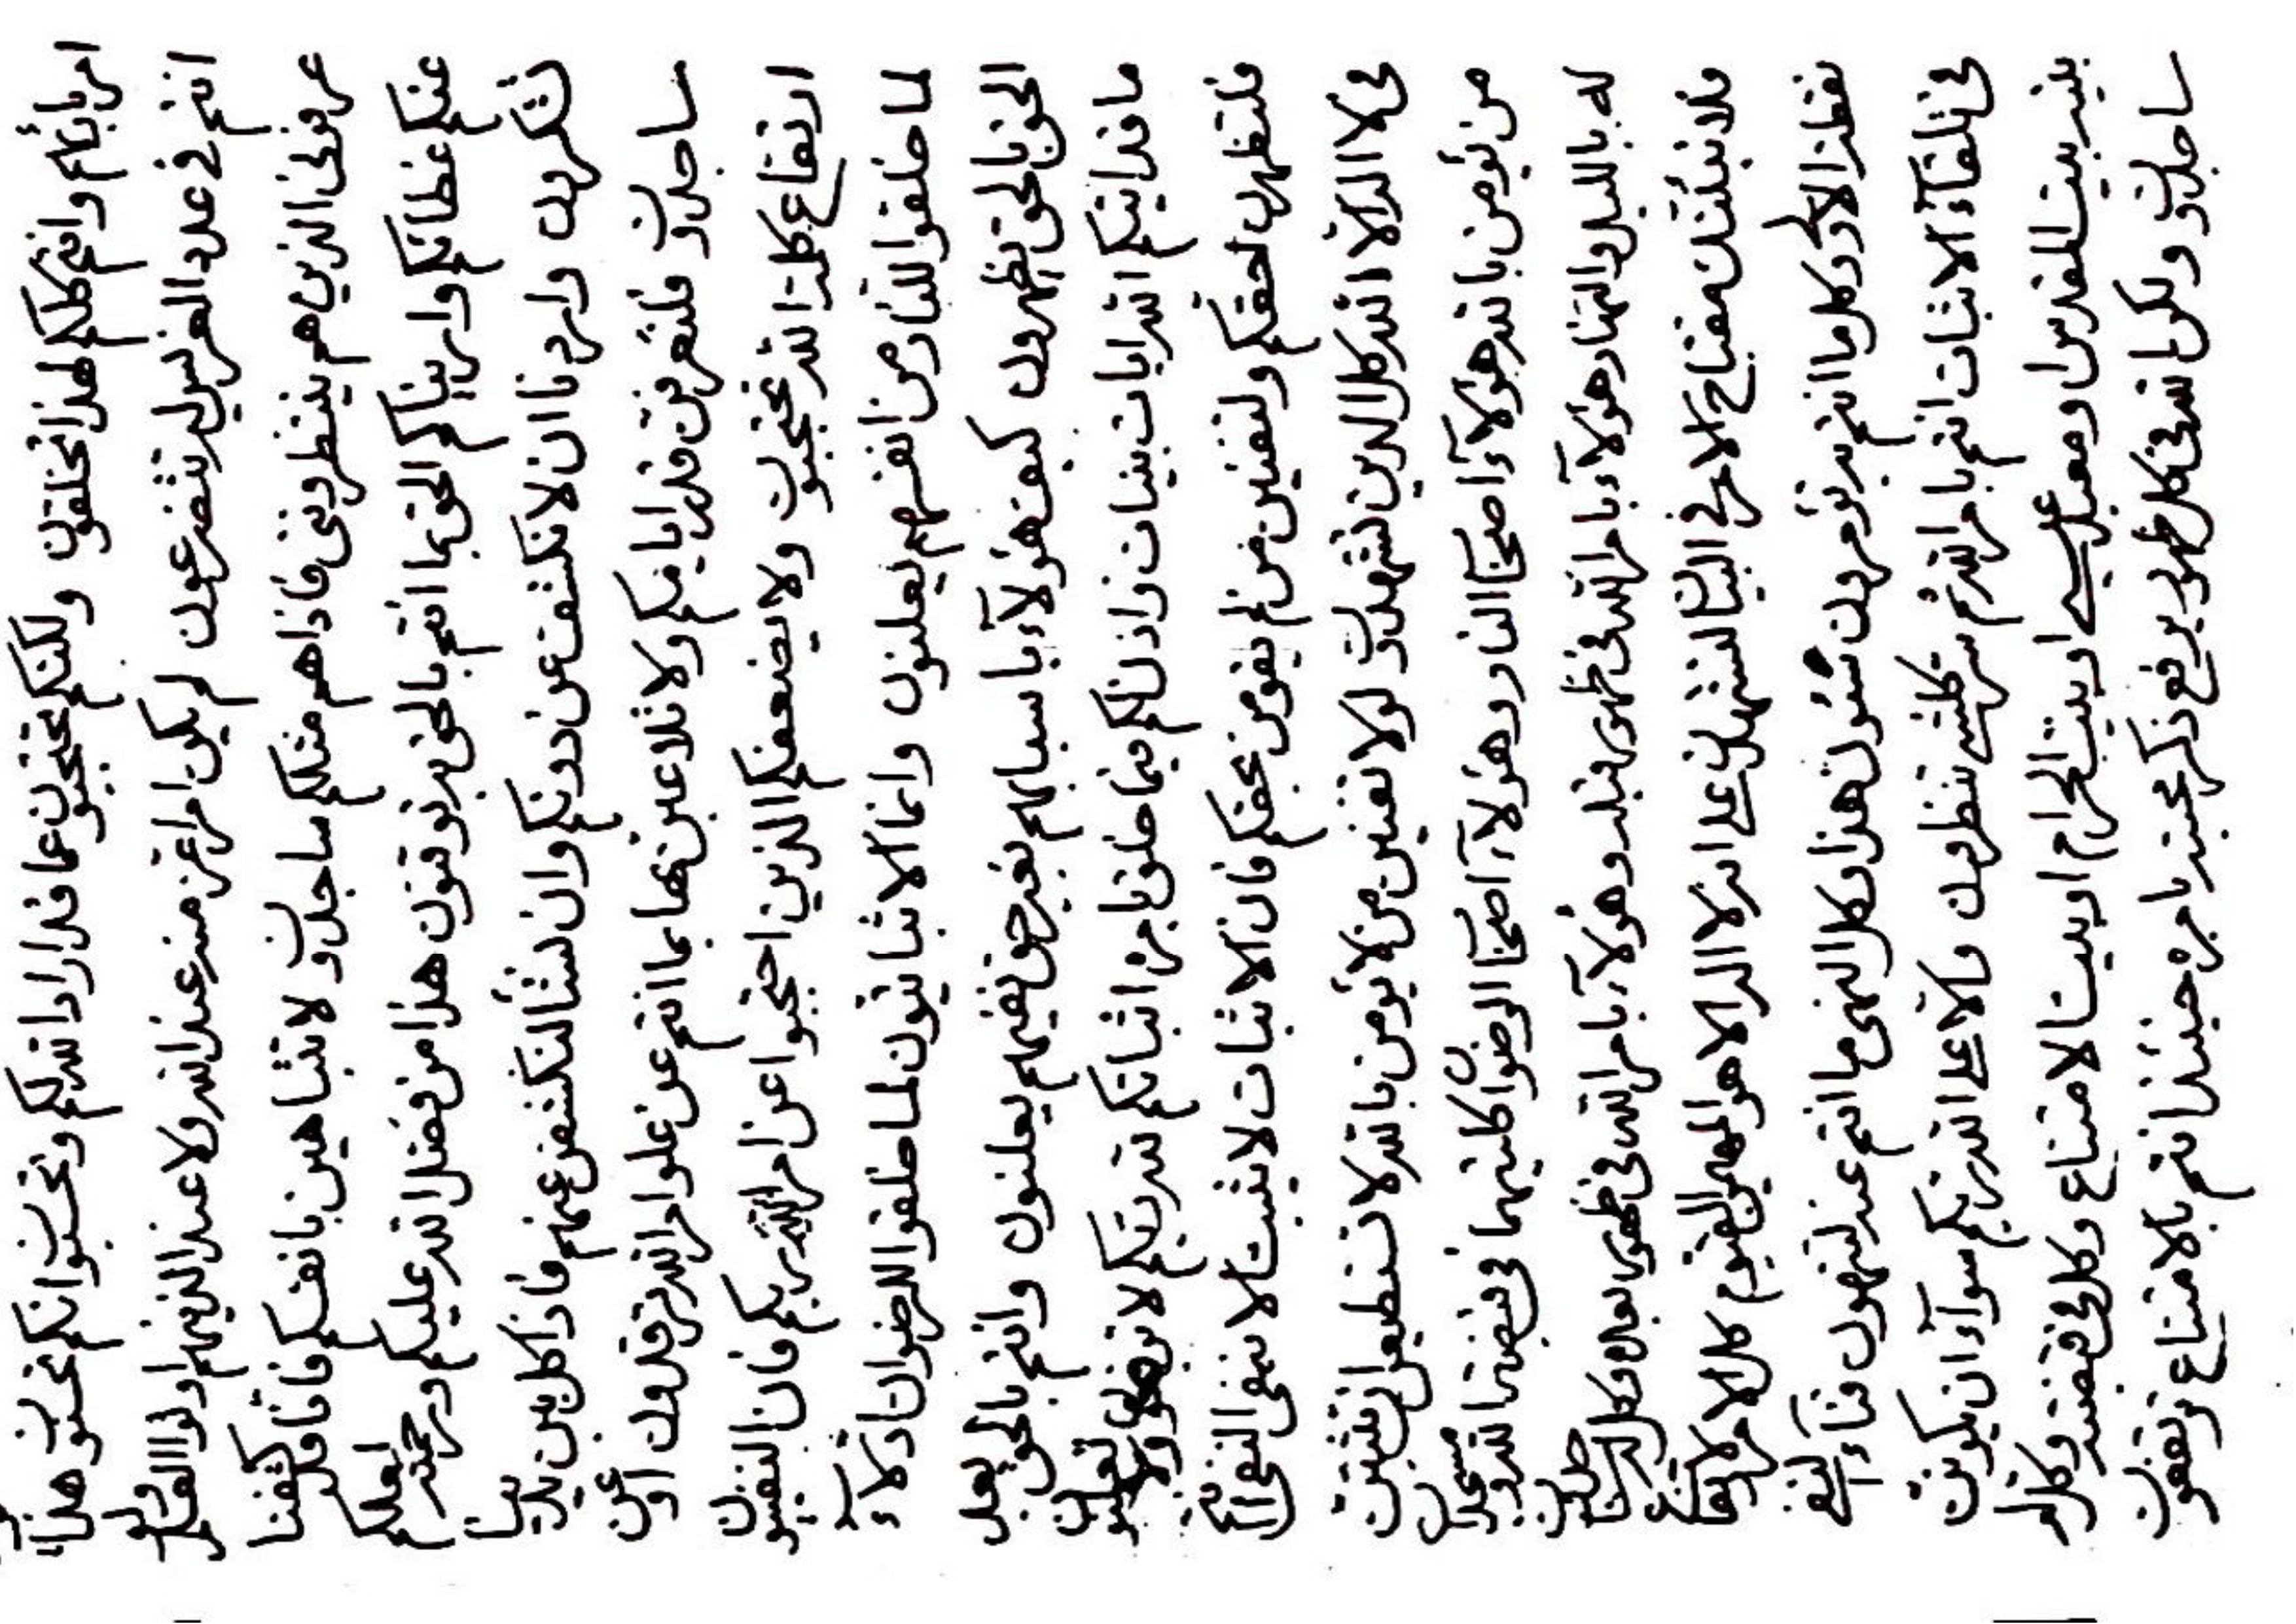 ولكنكم تحتجبون عما قد اراد الله لكم وتحسبوا انكم
لم يكن امر اعز منه عند الله ولا عند الذينهم اولوا العلم
عرفونى الذين هم ينتظروننى فاذا هم مثلكم ساجدون لا تشاهين بانفسكم فانا قد كشفنا
عنكم غطائكم واريناكم الحق بما انتم بالحق به توقنون هذا من فضل الله عليكم ورحمته لعلكم
تشكرون واردنا ان لا نكشف عن دونكم وان نشأ لنكشفن عنهم فاذا كل بين يديه
ساجدون فلتعرفن قدر ايامكم ولا تلاعبن بها بما انتم عن علو امر الله ترقدون
ارتفاع كلمة الله تحتجبون ولا يضعفكم الذين احتجبوا عن امر الله ربكم فان النفيون
لما خلقوا للنار من انفسهم يعلنون وانما الاثباتيون لما خلقوا للرضوان
الحق بالحق تظهرون كيف هؤلاء باسبابهم بغير حق نفيهم يعلنون وانتم بالحق بعد
ما قد اتيكم الله ايات بينات واذن لكم فيما خلق بامر اثباتكم لله ربكم
فلتظهرن لحقكم ولتفنين من لم يؤمن بحقكم فان الاثبات لا يثبت الا بنفى النفى
فى لا اله الا الله كل الدين تشهدون لو لا تفنين من لا يؤمن بالله لا تستطيعوا ان تثبتن
من يؤمن بالله هؤلاء اصحاب النار وهؤلاء اصحاب الرضوان كليهما فى قبضة الله
له بالليل والنهار هؤلاء بامر الله فى ظهور قبله وهؤلاء بامر الله فى ظهور بعده وكل
فلانبئنك مفتاح الامر فى البيان لتشهدن على انه لا اله الا هو المهيمن القيوم كل الامر
كل ما انتم به تؤمرون شئون هذا وكل النهى ما انتم عنه لتنهون
فى تلقاء الاثبات انتم بامر الله ثم كلمته تنظرون والا على الله ربكم سواء ان يكون
بيته بيت المقدس او معبد عيسى او بيت الحرام او بيت الامتناع وكل فى قبضته وكل له
ساجدون ولكن الله فى كل ظهور يرفع ذكر بيته بامره حينئذ انتم بالامتناع ترتفعون